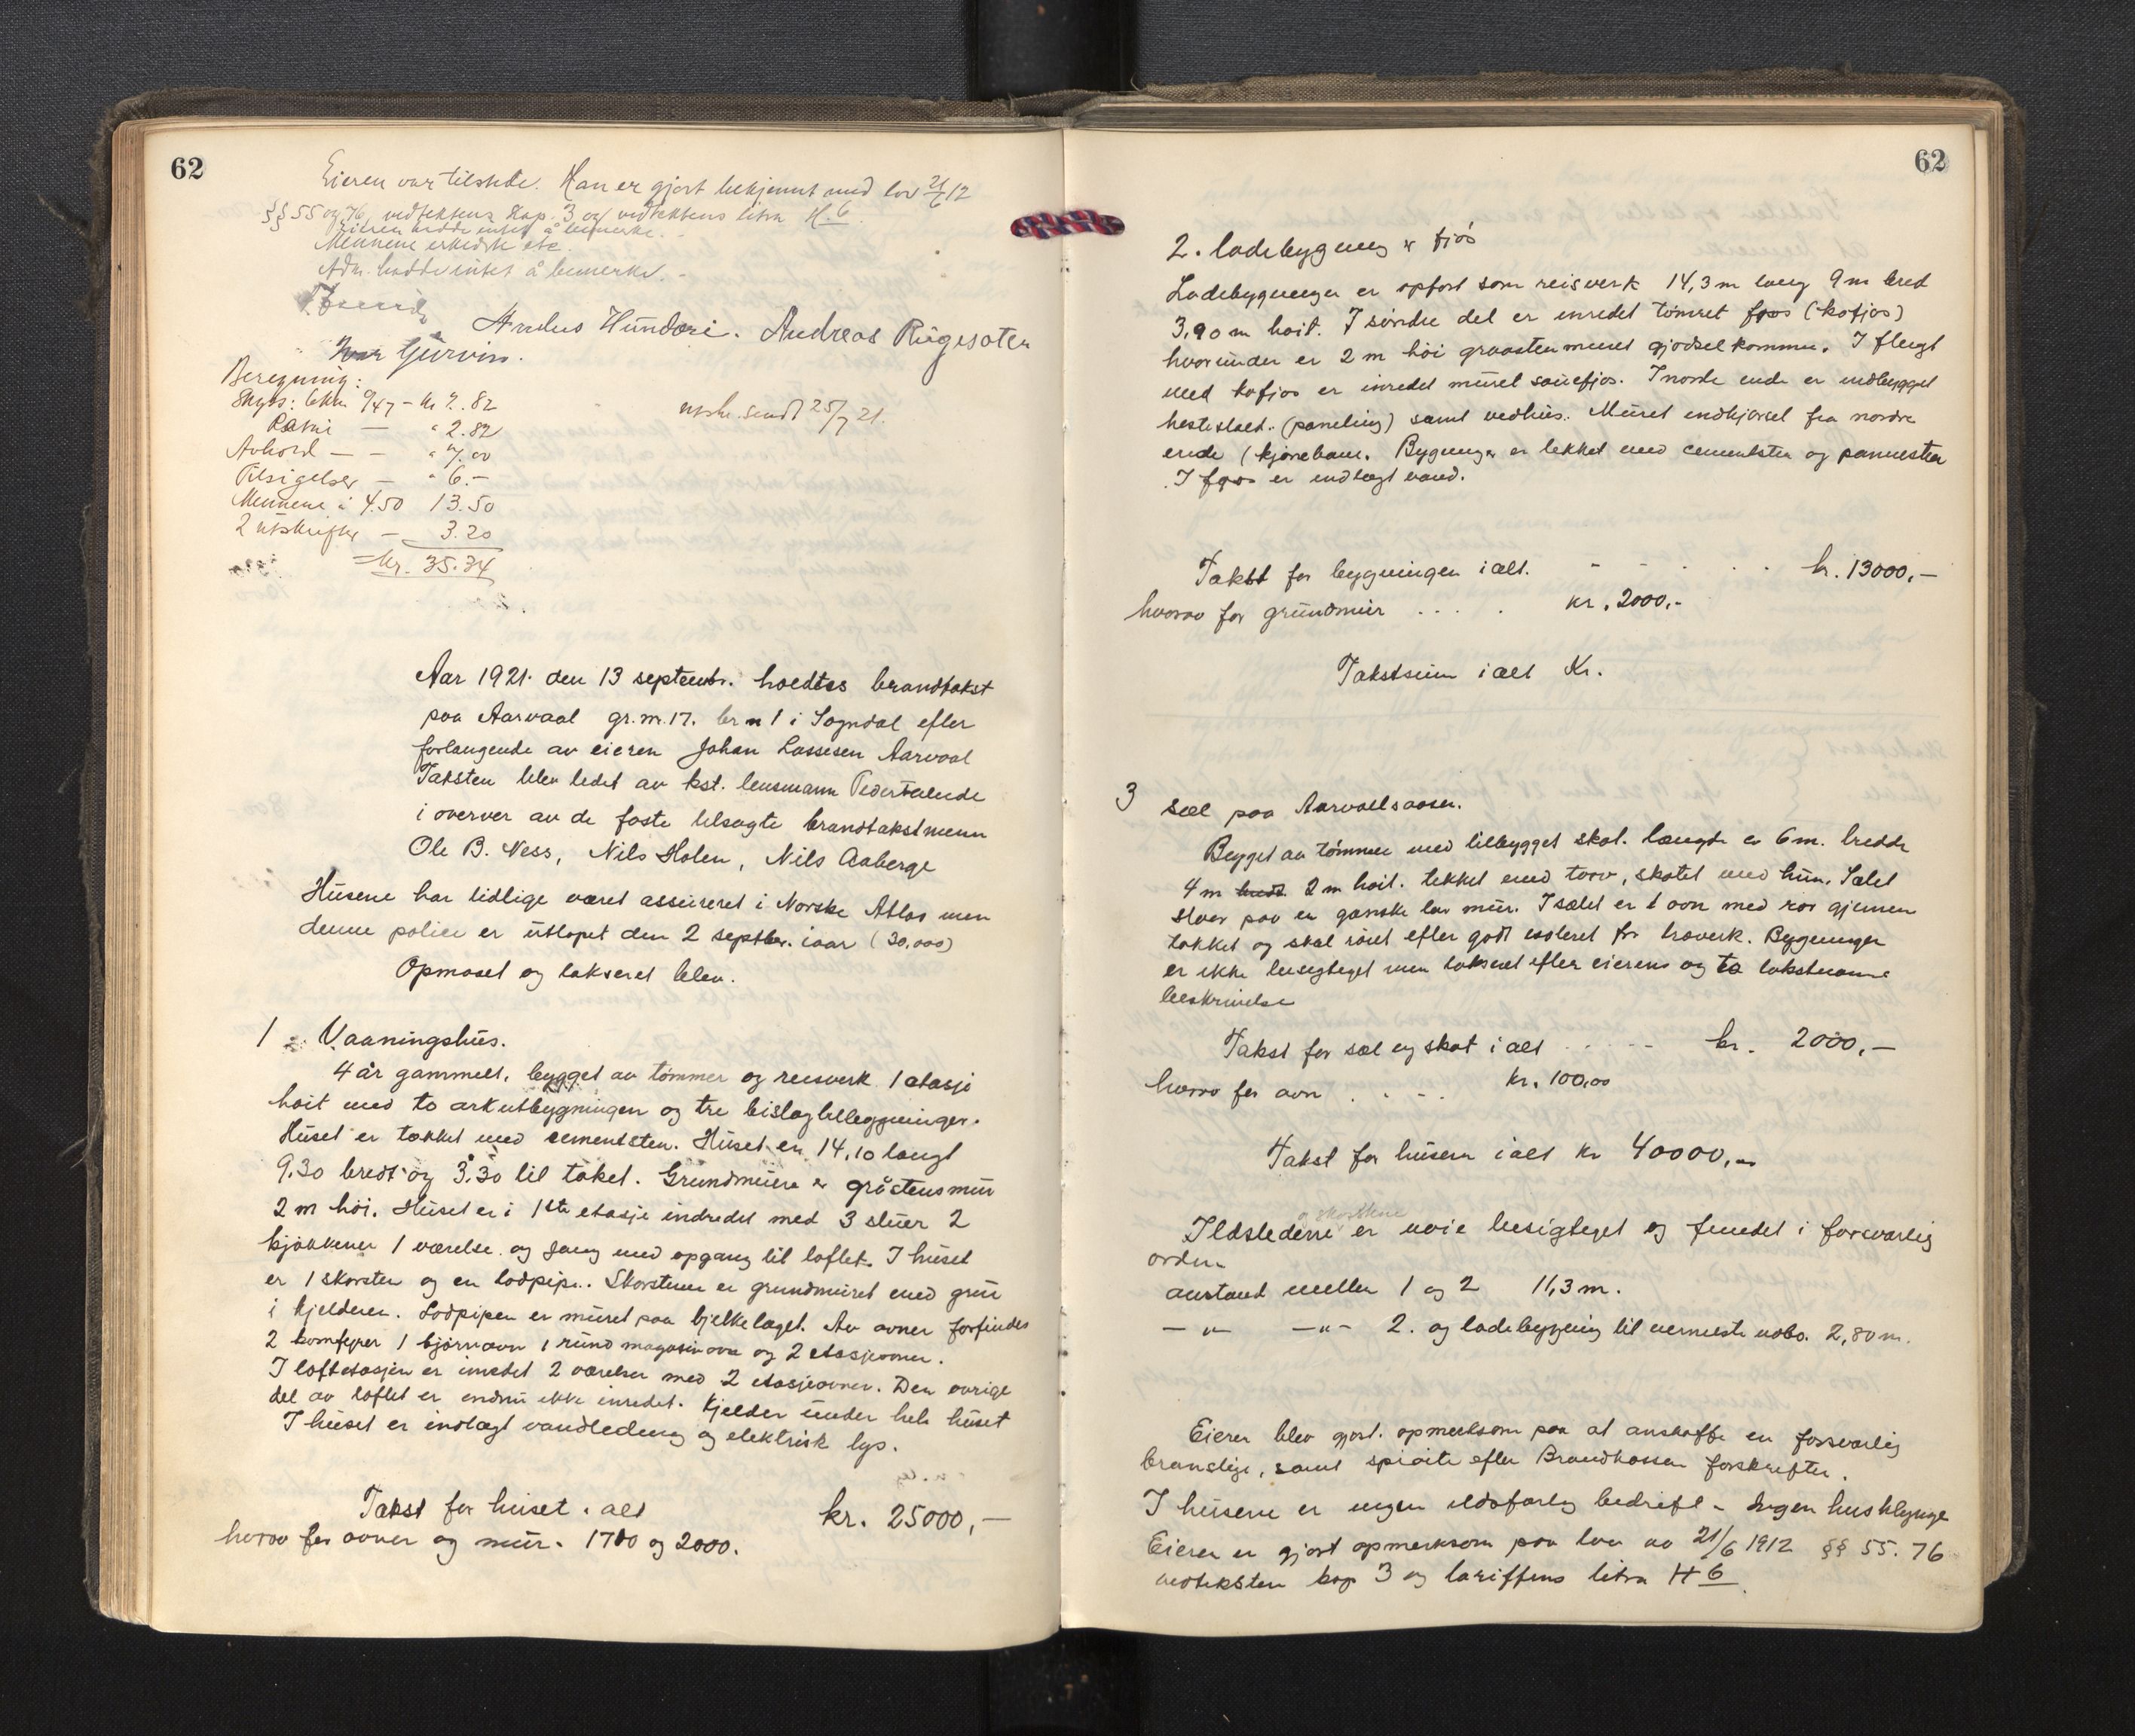 62
Eieren var tilstede. Han er gjort bekjennt med lov 21/6 12
§§ 55 og 76, vedtektens Kap. 3 og vedtektens litra H. 6
Eieren hadde intet å bemerke.
Mennene erkjedte etc.
Adm. hadde intet å bemerke. -
Andreas Rügesaten
Beregning:
kr 7.82
— " 2.82
Avhold — - " 7.00
Tilsigelser — " 6.-
Mennene à 4.50 13.50
2 utskrifter — 3.20
Kr. 35.34
utskr. sendt 25/7 21.
Aar 1921. den 13 septembr. holdtes brandtakst
paa Aarvaal gr.nr. 17. br n 1 i Sogndal efter
forlangende av eieren Johan Lassesen Aarvoal
Taksten blev ledet av kst. lensmann
i overver av de faste tilsagte brandtakstmenn
Ole B. Ness, Nils Holen, Nils Aaberge
Husene har tidlige været assureret i Norske Atlas men
denne police er utløpet den 2 septbr. iaar (30,000)
Opmaset og takseret blev.
1 Vaaningshus.
4 år gammelt, bygget av tømmer og reisverk 1 etasje
høit med to arkutbygningen og tre bislagtilleggninger.
Huset er takket med cementsten. Huset er 14,10 langt
9.30 bredt og 3.30 til taket. Grundmuren er gråstensmur
2 m høi. Huset er i 1ste etasje indredet med 3 stuer 2
kjøkkener 1 værelse og gang med opgang til loftet. I huset
er 1 skorsten og en lodpipe. Skorstenen er grundmuret med grue
i kjelderen. Lodpipen er muret paa bjelkelaget. Av ovner forfindes
2 komfyrer 1 bjørnovn 1 rund magasinovn og 2 etasjeovner.
I loftetasjen er inredet 2 værelser med 2 etasjeovner. Den øvrige
del av loftet er endnu ikke inredet. Kjelder under hele huset
I huset er indlagt vandledning og elektrisk lys.
Takst for huset i alt kr. 25000,—
hvorav for ovner og mur. 1700 og 2000.
62
2. Ladebygning & fjøs
Ladebygningen er opført som reisverk 14,3 m lang 9 m bred
3,90 m høit. I søndre del er inredet tømret fjøs (kofjøs)
hvorunder er 2 m høi graasten muret gjødselkommer. I flugt
med kofjøs er inredet muret sauefjøs. I nordre ende er indbygget
hestestald. (paneling) samt vedhus. Muret indkjørsel fra nordre
ende (kjørebane. Bygningen er tekket med cementsten og pannesten
I fjøs er indlagt vand.
Takst for bygningen ialt. - - . . . kr. 13000,—
hvorav for grundmur . . . . kr. 2000,-
Takstsum i alt Kr.
3 Sæl paa Aarvollsaasen.
Bygget av tømmer med tilbygget skot. længde er 6 m. bredde
4 m 2 m høit. tekket med torv, skotet med hun. Sælet
staar paa en ganske lav mur. I sælet er 1 ovn med rør gjennem
takket og skal røret efter godt isoleret for træverk. Bygningen
er ikke besigtiget men takseret efter eierens og to takstmænns
beskrivelse
Takst for sæl og skot i alt . . . - - kr. 2000,—
hvorav for ovn . . - . kr. 100,00
Takst for husene ialt Kr 40000,-
og skorstene
Ildstederne er nøie besigtiget og fundet i forsvarlig
orden
avstand mellem 1 og 2 11,3 m.
— " — — " — 2. og ladebygning til nermeste nabo. 2,80 m.
Eieren blev gjort opmerksom paa at anskaffe en forsvarlig
branstige, samt spröite efter Brandkassen forskrifter.
I husene er ingen ildsfarlig bedrift - Ingen husklynge
Eieren er gjort opmerksom paa lov av 21/6 1912 §§ 55. 76
vedteksten kap 3 og tariffens litra H 6